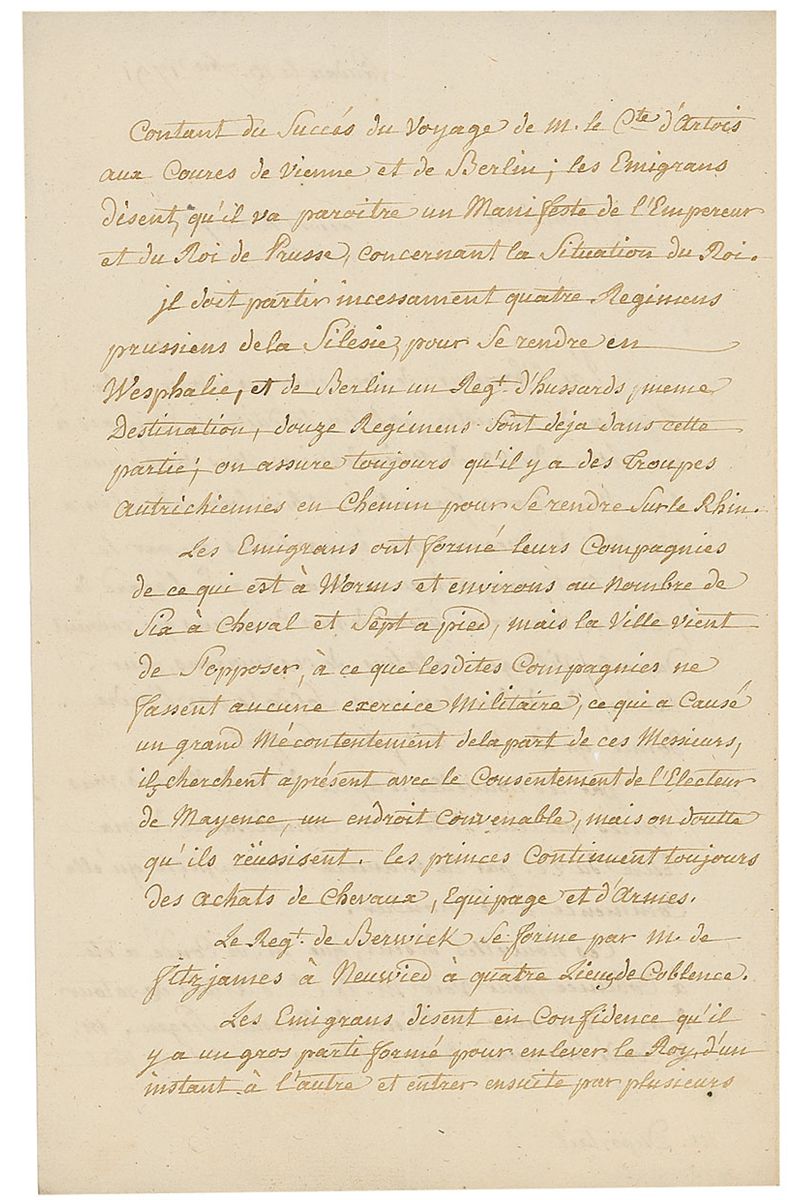 Contant du Succés du Voyage de M. le Cte d'Artois
aux Coures de Vienne et de Berlin; les Emigrans
disent, qu'il va paroitre un Manifeste de l'Empereur
et du Roi de Prusse, concernant la Situation du Roi.
jl doit partir incessament quatre Regimens
prussiens de la Silesie, pour Se rendre en
Wesphalie, et de Berlin un Regt. d'hussards, meme
Destination, douze Regimens Sont deja dans cette
partie; on assure toujours qu'il y a des Troupes
autrichiennes en Chemin pour Se rendre Sur le Rhin.
Les Emigrans ont formé leurs Compagnies
de ce qui est à Worms et environs au Nombre de
Six à Cheval et Sept a pied, mais la Ville vient
de S'opposer, à ce que lesdites Compagnies ne
fassent aucune exercice Militaire, ce qui a Causé
un grand Mécontentement dela part de ces Messieurs,
ils cherchent aprésent avec le Consentement de l'Electeur
de Mayence, un endroit Convenable, mais on doutte
qu'ils rëüssisent. les princes Continuent toujours
des achats de Chevaux, Equipage et d'Armes.
Le Regt. de Berwick Se forme par M. de
fitzjames à Neuwied à quatre Lieues de Coblence.
Les Emigrans disent en Confidence qu'il
y a un gros parti formé pour enlever le Roy, d'un
instant à l'autre et entrer ensuite par plusieurs